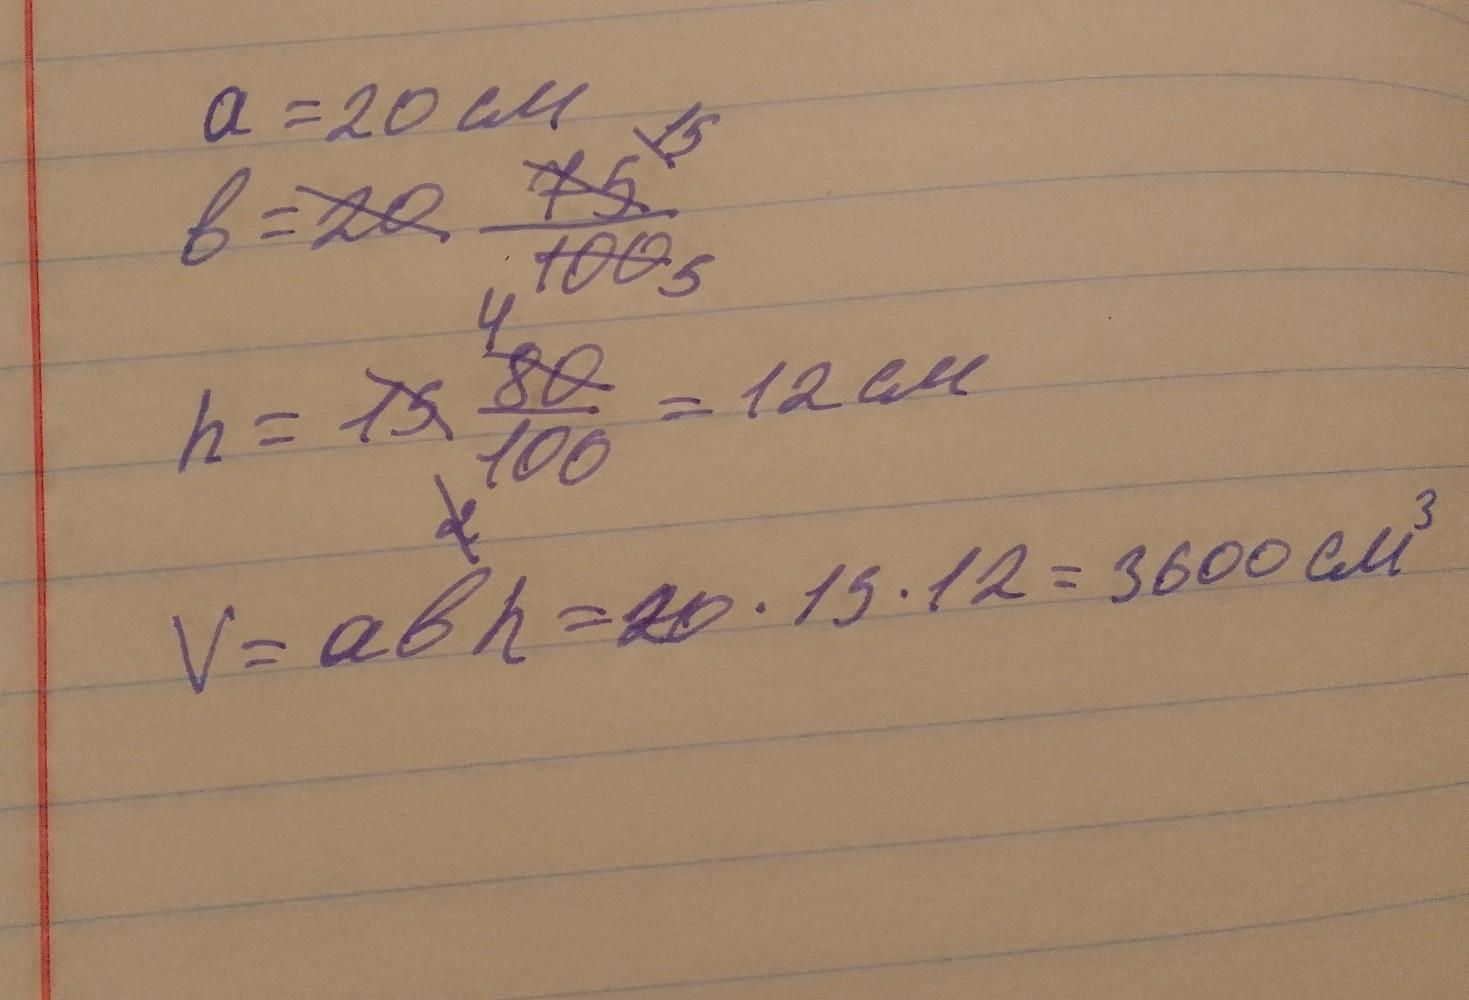 a = 20 см
в = 20 75/100 15 5
h = 15 80/100 = 12 см
4
V = aвh = 20 · 15 · 12 = 3600 см³